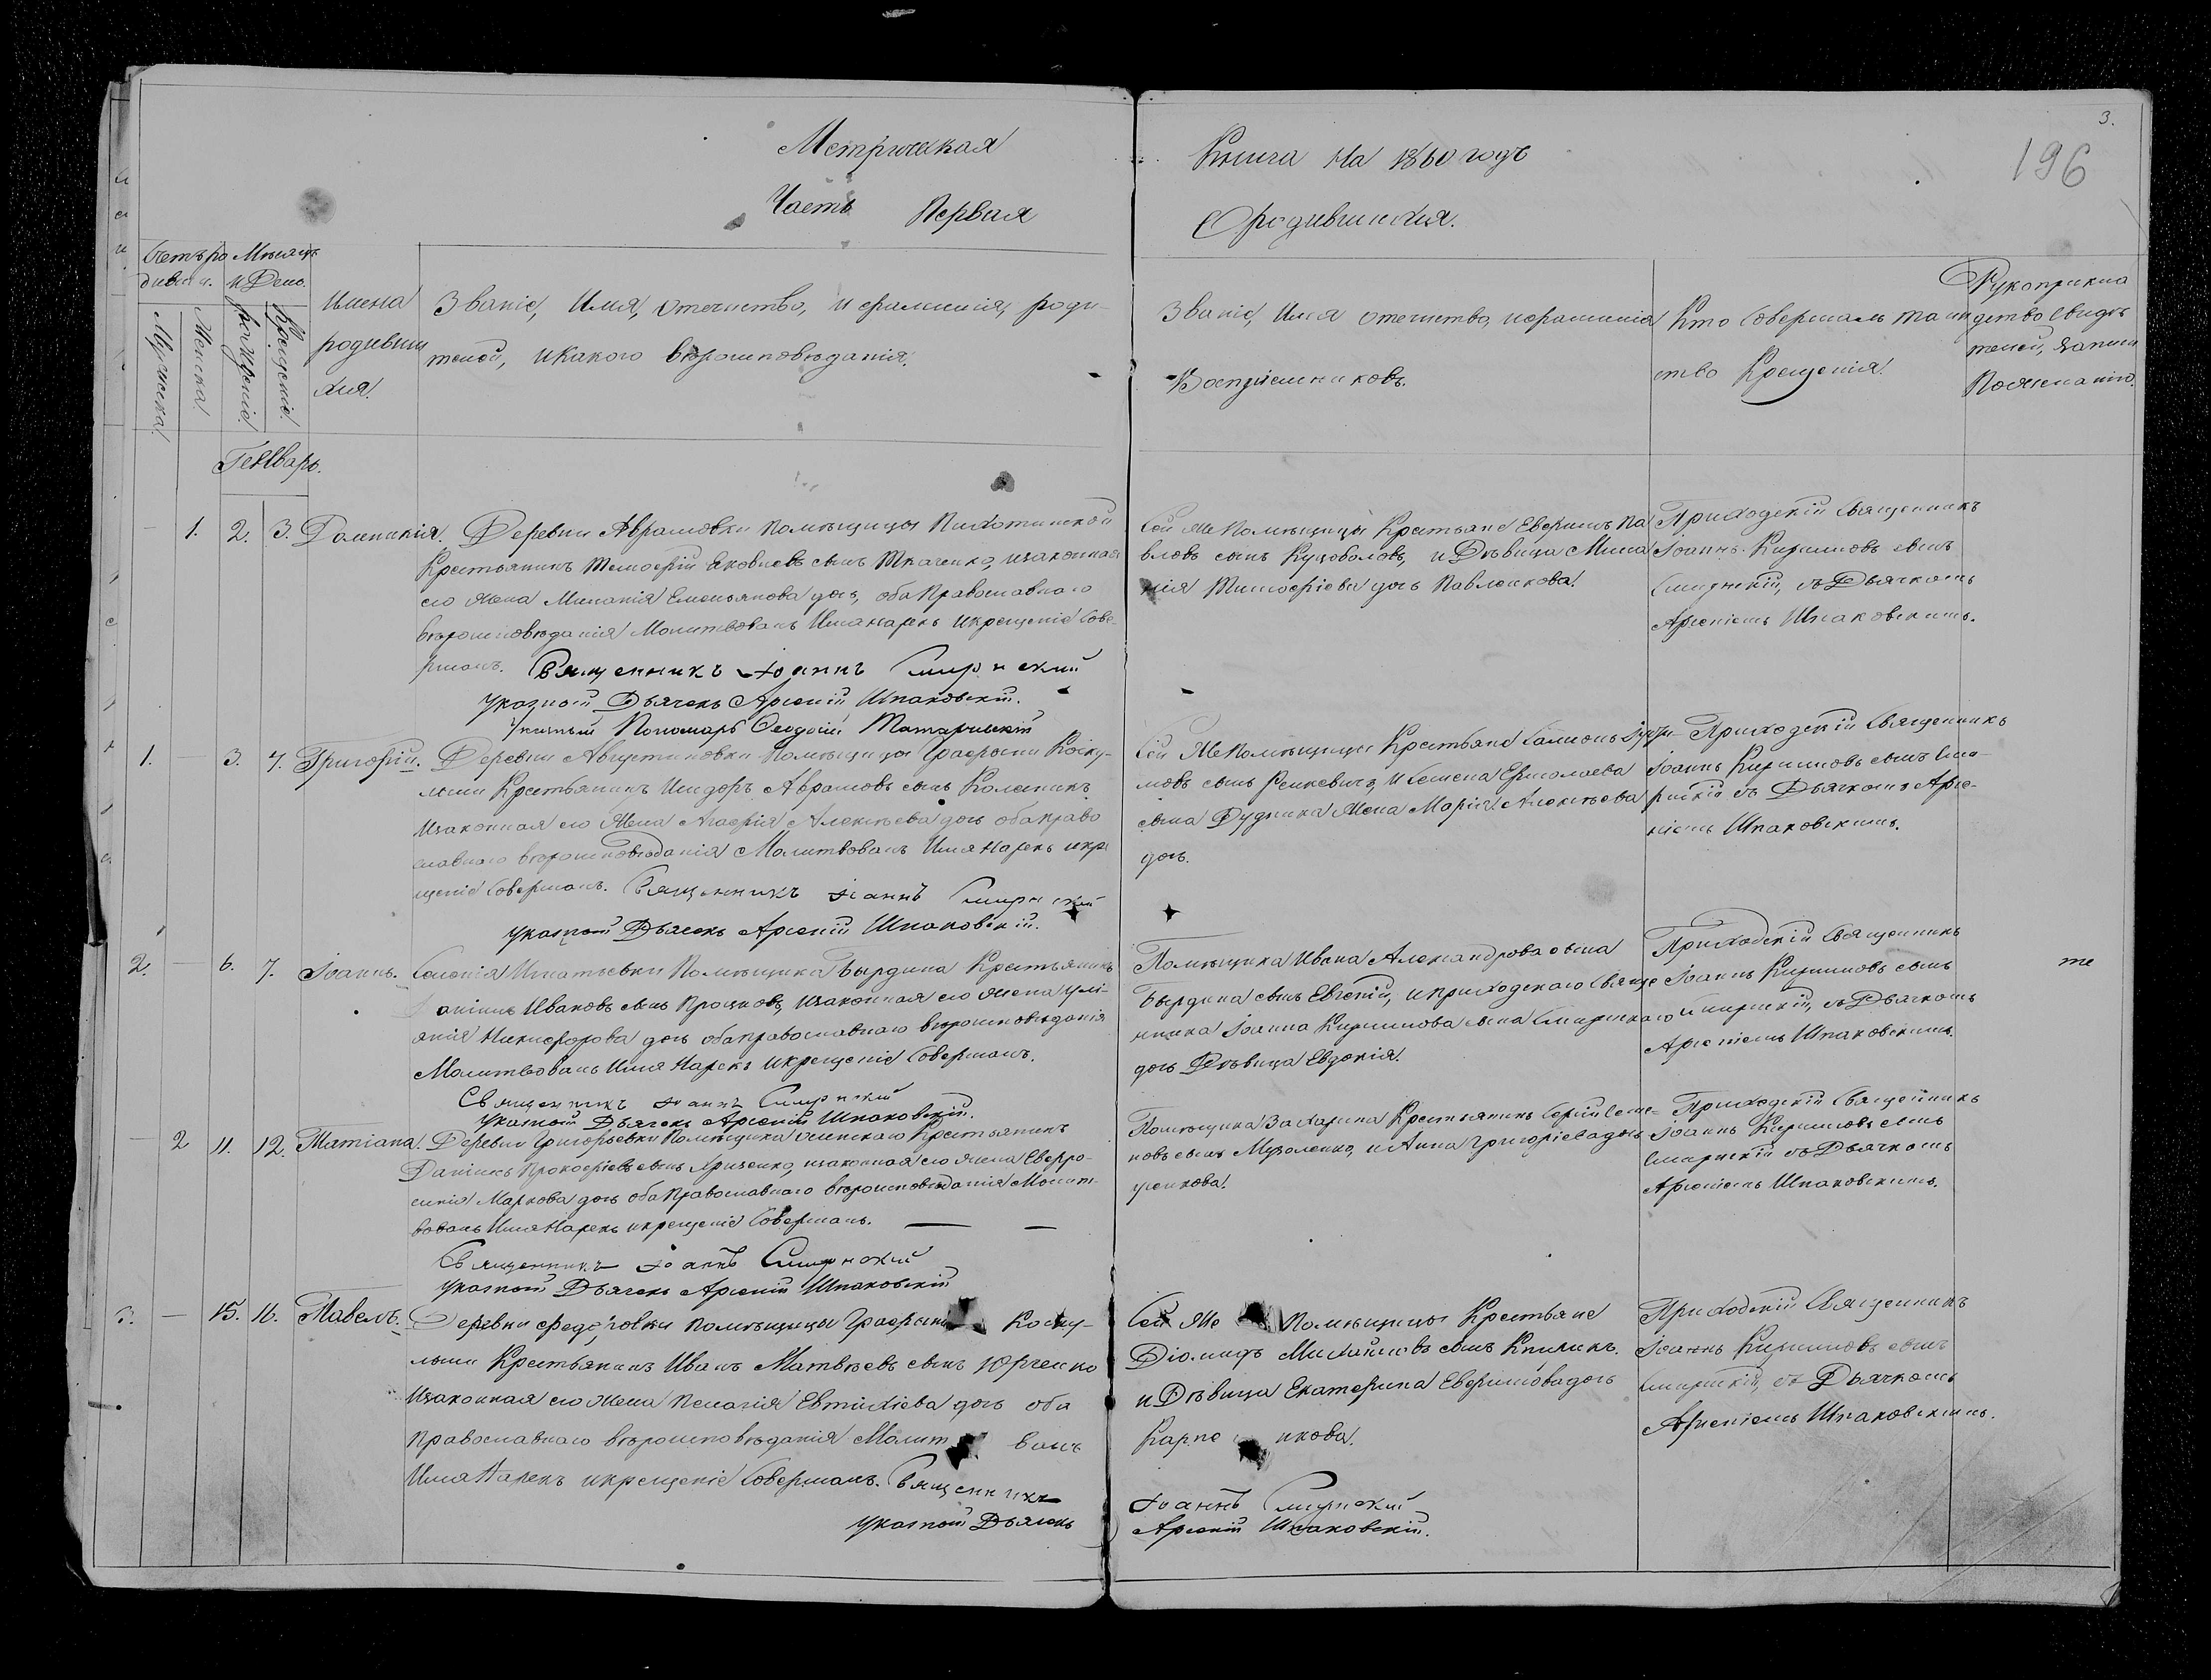 3.
196
Метрическая Книга на 1860 годъ
Часть Первая О родившихся.
Счетъ ро
дивших.
Мѣсяцъ
и День.
Мужеска.
Женска.
рожденіе.
Крещеніе.
Имена
родивши
хся.
Званіе, Имя, отечество, и фамилія, роди-
телей, и какого вѣроисповѣданія.
Званіе, Имя отечество, и фамилія
Воспріемниковъ.
Кто совершалъ таин
ство Крещенія.
Рукоприкла
дство свидѣ
телей, записи
По желанію.
Генварь.
1. 2. 3. Домникія.
Деревни Аврамовки помѣщицы
Крестьянинъ Тимофій Яковлевъ сынъ Ткаченко, и законная
его жена Миланія Емельянова дочь, оба православнаго
вѣроисповѣданія Молитвовалъ Имя нарекъ и крещеніе Сове-
ршалъ. Священникъ Іоаннъ Смирнский
указной Дьячекъ Арсеній Шпаковскій.
Указный Пономарь Ѳеодосій
Сей же Помѣщицы Крестьяне Евфимъ Па
вловъ сынъ и Дѣвица Мила
нія Тимофіева дочь Павленкова.
Приходскій Священникъ
Іоаннъ Кириловъ сынъ
Смирнскій, съ Дьячкомъ
Арсеніемъ Шпаковскимъ.
1. — 3. 7. Григорій.
Деревни Августиновки помѣщицы Графыни
Крестьянинъ Исидоръ Аврамовъ сынъ Колесникъ
и законная его Жена Агафія Алексѣева дочь оба право
славнаго вѣроисповѣданія Молитвовалъ Имя нарекъ и кре
щеніе Совершалъ. Священникъ Іоаннъ Смирнский
указной Дьячекъ Арсеній Шпаковскій.
Сей же Помѣщицы Крестьяне
мовъ сынъ и Семена Ермолаева
сына Рудника Жена Марія Алексѣева
дочь.
Приходскій Священникъ
Іоаннъ Кириловъ сынъ Сми-
рнскій съ Дьячкомъ Арсе-
ніемъ Шпаковскимъ.
2. — 6. 7. Іоаннъ.
Селенія Игнатьевки Помѣщика Бырдина Крестьянинъ
Ивановъ сынъ и законная его жена Улі-
янія Никифорова дочь оба православнаго вѣроисповѣданія
Молитвовалъ Имя Нарекъ и крещеніе Совершалъ.
Священникъ Іоаннъ Смирнский
указной Дьячекъ Арсеній Шпаковскій.
Помѣщика Ивана Александрова сына
Бырдина сынъ Евгеній, и приходскаго Свяще
нника Іоанна Кириллова сына Смирнскаго
дочь Дѣвица Евдокія.
Приходскій Священникъ
Іоаннъ Кириловъ сынъ
Смирнскій, съ Дьячкомъ
Арсеніемъ Шпаковскимъ.
те
— 2 11. 12. Татіана.
Деревни Григорьевки Помѣщика Крестьянинъ
Даніилъ Прокофіевъ сынъ и законная его жена Евфро-
синія Маркова дочь оба Православнаго вѣроисповѣданія Молит-
вовалъ Имя Нарекъ и крещеніе Совершалъ.
Священникъ Іоаннъ Смирнский
указной Дьячекъ Арсеній Шпаковскій
Помѣщика Захарина Крестьянинъ
новъ сынъ и Анна Григоріева дочь
Приходскій Священникъ
Іоаннъ Кириловъ сынъ
Смирнскій съ Дьячкомъ
Арсеніемъ Шпаковскимъ.
3. — 15. 16. Павелъ.
Деревни помѣщицы Графыни
Крестьянинъ Иванъ Матвѣевъ сынъ Юрченко
и законная его жена Пелагія Евтихіева дочь оба
Православнаго вѣроисповѣданія Молитвовалъ
Имя Нарекъ и крещеніе Совершалъ. Священникъ
указной Дьячекъ
Сей Же Помѣщицы Крестьяне
Діомидъ Михайловъ сынъ
и Дѣвица Екатерина Евфимова дочь
Іоаннъ Смирнский
Арсеній Шпаковскій.
Приходскій Священникъ
Іоаннъ Кириловъ сынъ
Смирнскій, съ Дьячкомъ
Арсеніемъ Шпаковскимъ.